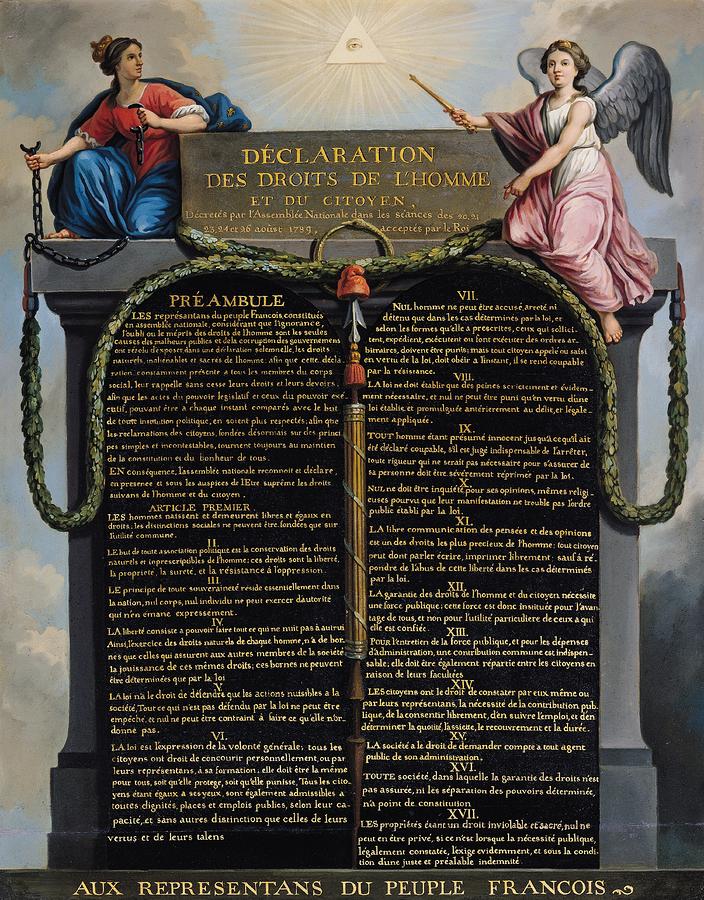 DÉCLARATION
DES DROITS DE L'HOMME
ET DU CITOYEN,
Décretés par l'Assemblée Nationale dans les séances des 20, 21
23, 24 et 26 août 1789, acceptés par le Roi
PRÉAMBULE
LES représentans du peuple François, constitués
en assemblée nationale, considérant que l'ignorance,
l'oubli ou le mépris des droits de l'homme sont les seules
causes des malheurs publics et de la corruption des gouvernemens
ont résolu d'exposer dans une déclaration solemnelle, les droits
naturels, inaliénables et sacrés de l'homme, afin que cette décla-
ration, constamment présente à tous les membres du corps
social, leur rappelle sans cesse leurs droits et leurs devoirs,
afin que les actes du pouvoir legislatif et ceux du pouvoir exé-
cutif, pouvant être à chaque instant comparés avec le but
de toute institution politique, en soient plus respectés; afin que
les reclamations des citoyens, fondées désormais sur des princi-
pes simples et incontestables, tournent toujours au maintien
de la constitution et du bonheur de tous.
EN conséquence, l'assemblée nationale reconnoit et déclare,
en presence et sous les auspices de l'Etre suprême les droits
suivans de l'homme et du citoyen.
ARTICLE PREMIER.
LES hommes naissent et demeurent libres et égaux en
droits; les distinctions sociales ne peuvent être fondées que sur
l'utilité commune.
II.
LE but de toute association politique est la conservation des droits
naturels et imprescriptibles de l'homme; ces droits sont la liberté,
la propriete, la sureté, et la résistance à l'oppression.
III.
LE principe de toute souveraineté réside essentiellement dans
la nation, nul corps, nul individu ne peut exercer d'autorité
qui n'en émane expressement.
IV.
LA liberté consiste a pouvoir faire tout ce qui ne nuit pas à autrui
Ainsi, l'exercice des droits naturels de chaque homme, n'a de bor-
nes que celles qui assurent aux autres membres de la société
la jouissance de ces mêmes droits; ces bornes ne peuvent
être déterminées que par la loi
V.
LA loi n'a le droit de défendre que les actions nuisibles a la
société, Tout ce qui n'est pas défendu par la loi ne peut être
empêché, et nul ne peut être contraint à faire ce qu'elle n'or-
donne pas.
VI.
LA loi est l'expression de la volonté générale; tous les
citoyens ont droit de concourir personnellement, ou par
leurs représentans, à sa formation; elle doit être la même
pour tous, soit qu'elle protege, soit qu'elle punisse, Tous les cito-
yens étant égaux a ses yeux, sont également admissibles a
toutes dignités, places et emplois publics, selon leur ca-
pacité, et sans autres distinction que celles de leurs
vertus et de leurs talens
VII.
NUL homme ne peut être accusé, arreté ni
détenu que dans les cas déterminés par la loi, et
selon les formes qu'elle a prescrites, ceux qui sollici-
tent, expédient, exécutent ou font exécuter des ordres ar-
bitraires, doivent être punis; mais tout citoyen appelé ou saisi
en vertu de la loi, doit obéir a l'instant, il se rend coupable
par la résistance.
VIII.
LA loi ne doit établir que des peines strictement et évidem-
ment nécessaire, et nul ne peut être puni qu'en vertu d'une
loi établie et promulguée antérierement au délit, et légale-
ment appliquée.
IX.
TOUT homme étant présumé innocent jusqu'à ce qu'il ait
été déclaré coupable, s'il est jugé indispensable de l'arrêter,
toute rigueur qui ne serait pas nécessaire pour s'assurer de
sa personne doit être sévèrement réprimée par la loi.
X.
NUL ne doit être inquiété pour ses opinions, mêmes religi-
euses pourvu que leur manifestation ne trouble pas l'ordre
public établi par la loi.
XI.
LA libre communication des pensées et des opinions
est un des droits les plus precieux de l'homme; tout citoyen
peut donc parler écrire, imprimer librement: sauf à ré-
pondre de l'abus de cette liberté dans les cas déterminés
par la loi.
XII.
LA garantie des droits de l'homme et du citoyen nécessite
une force publique; cette force est donc instituée pour l'avan-
tage de tous, et non pour l'utilité particuliere de ceux a qui
elle est confiée.
XIII.
POUR l'entretien de la force publique, et pour les dépenses
d'administration, une contribution commune est indispen-
sable; elle doit être également répartie entre les citoyens en
raison de leurs facultées
XIV.
LES citoyens ont le droit de constater par eux même ou
par leurs représentans, la nécessité de la contribution pub-
lique, de la consentir librement, d'en suivre l'emploi, et d'en
déterminer la quotité, l'assiette, le recouvrement et la durée.
XV.
LA société a le droit de demander compte a tout agent
public de son administration.
XVI.
TOUTE société, dans laquelle la garantie des droits n'est
pas assurée, ni les séparation des pouvoirs déterminée,
n'a point de constitution
XVII.
LES propriétés étant un droit inviolable et sacré, nul ne
peut en être privé, si ce n'est lorsque la nécessité publique,
légalement constatée, l'exige evidemment, et sous la condi-
tion d'une juste et préalable indemnité.
AUX REPRESENTANS DU PEUPLE FRANCOIS